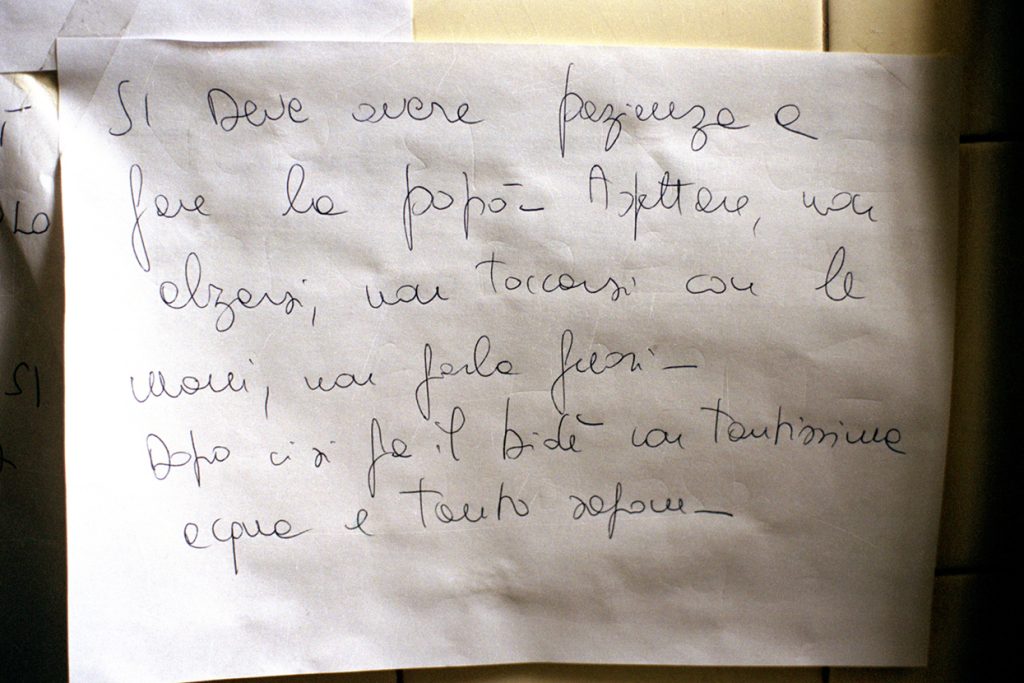 SI Deve avere pazienza a
fare la popò - Aspettare, non
alzarsi, non Toccarsi con le
mani, non farla fuori -
Dopo ci si fa il bidè con Tantissima
acqua e tanto sapone -
LO
SI